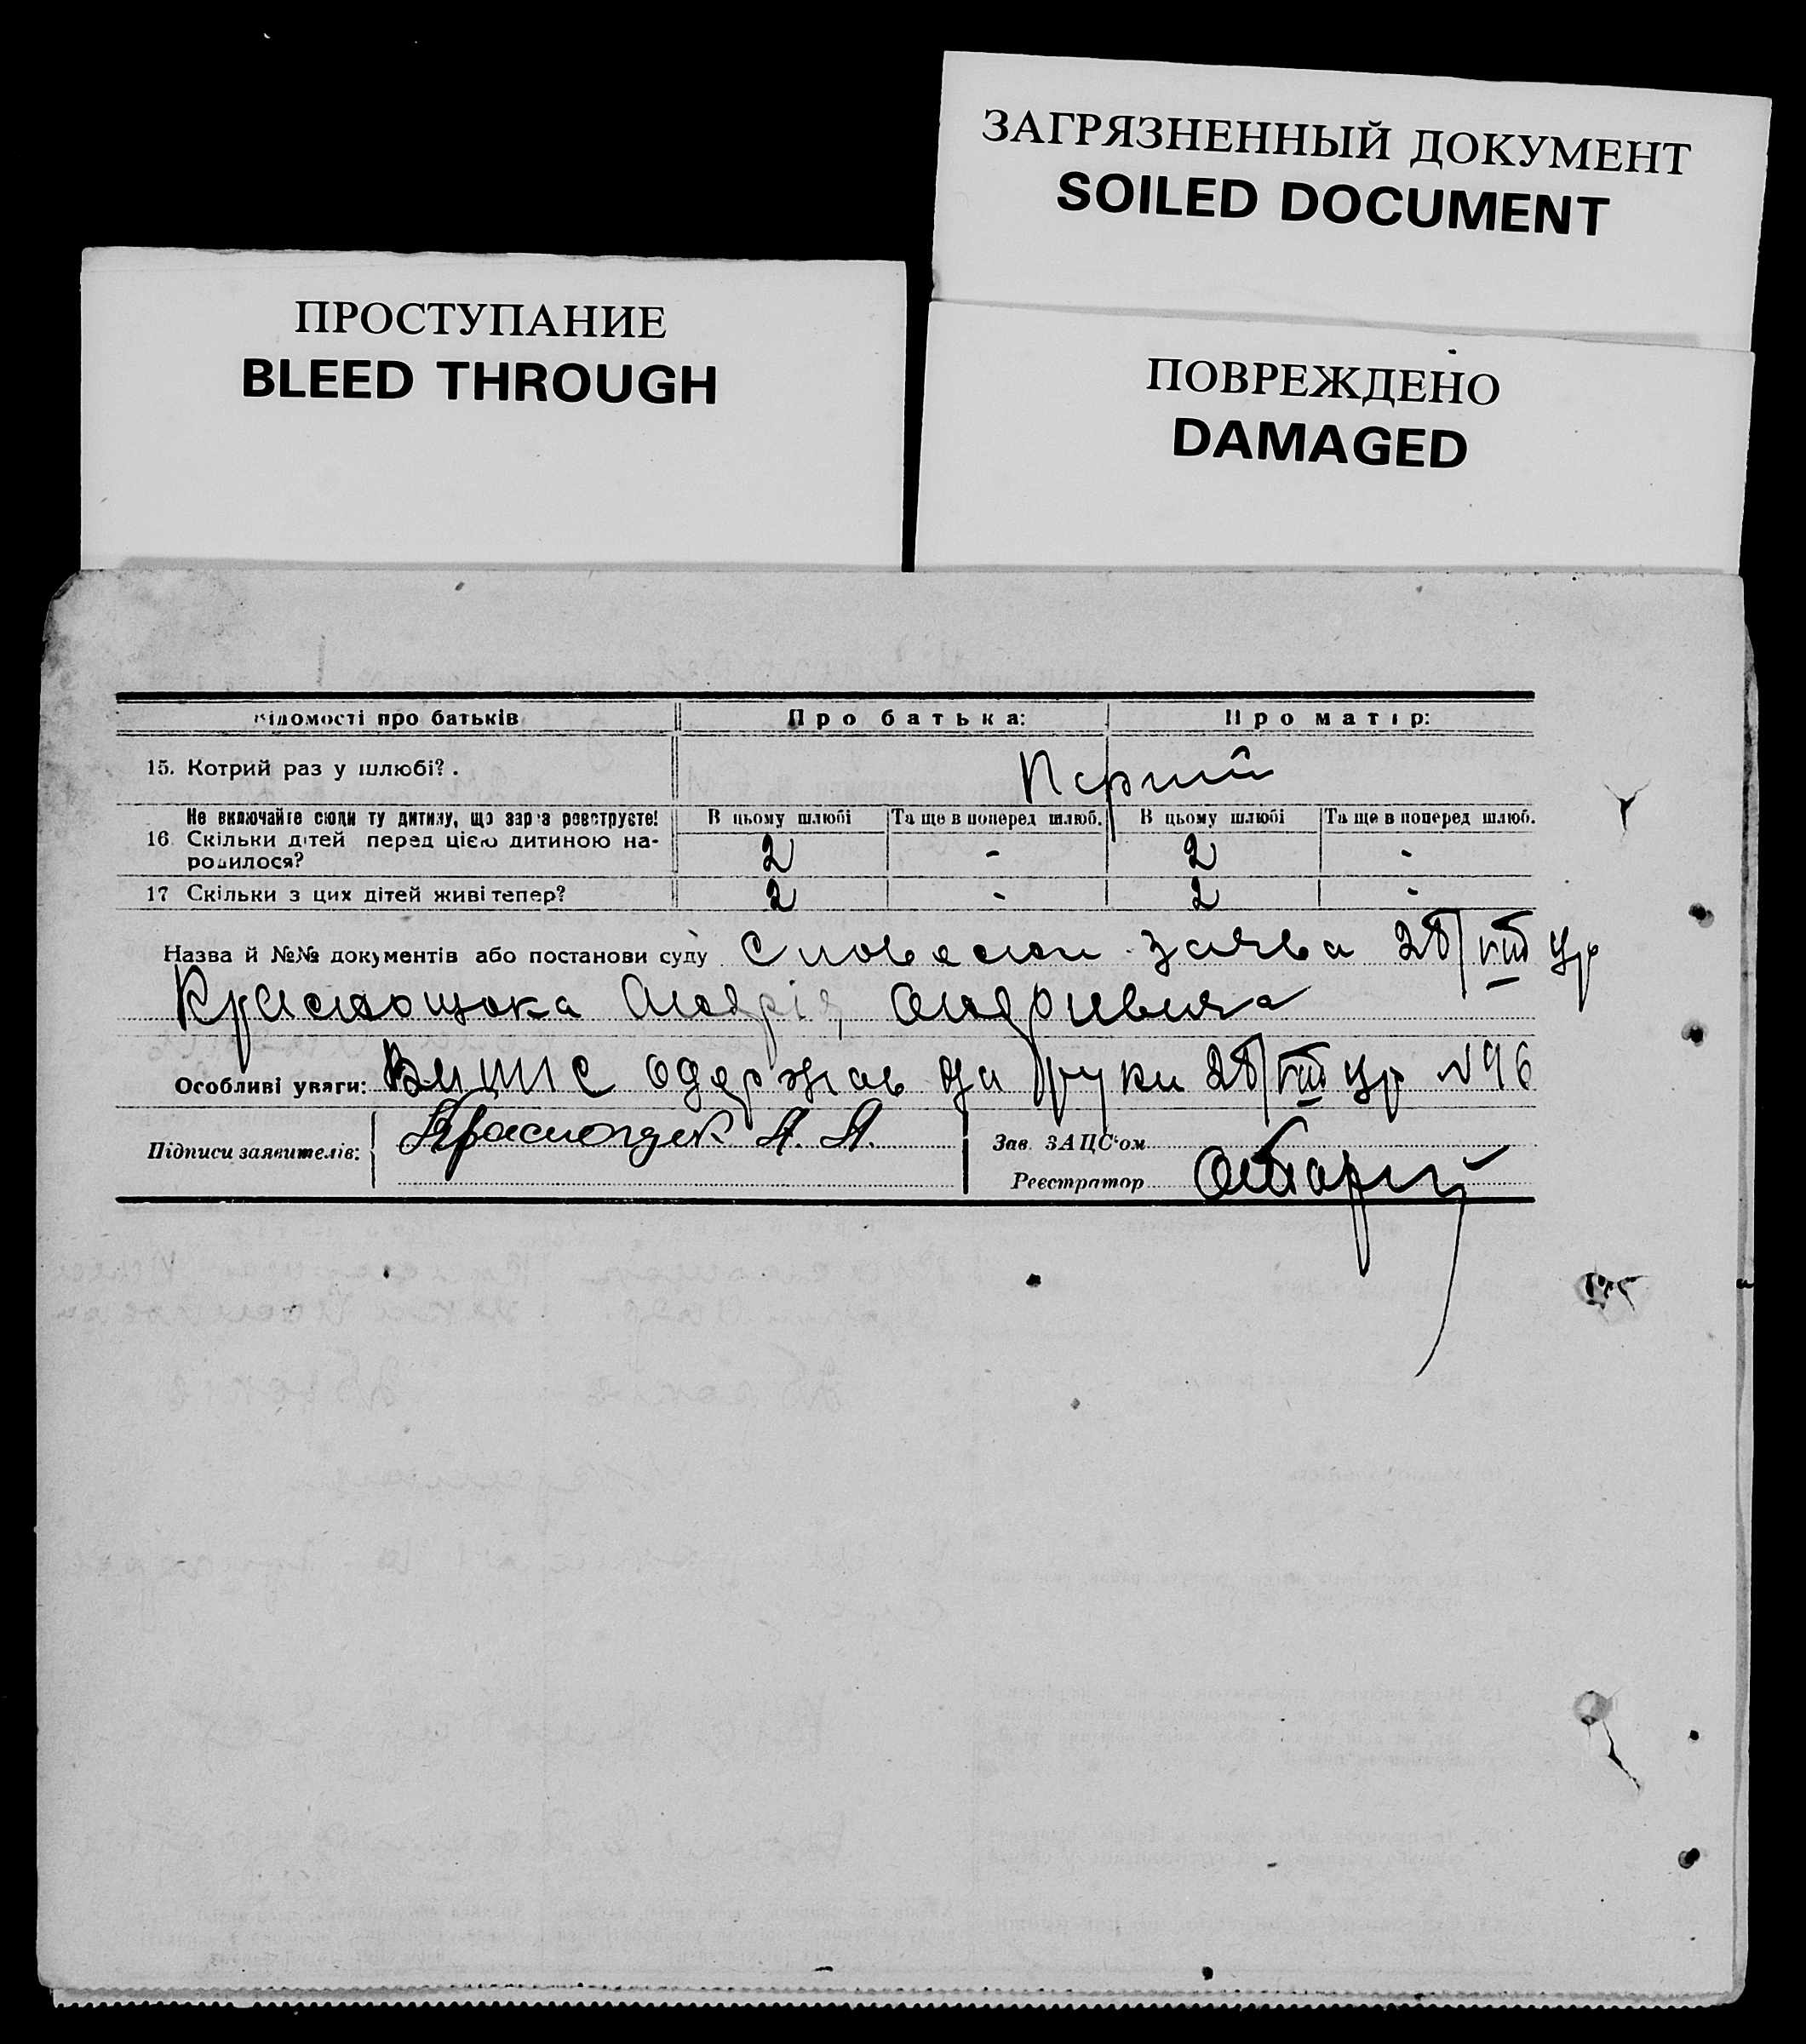 ЗАГРЯЗНЕННЫЙ ДОКУМЕНТ
SOILED DOCUMENT
ПРОСТУПАНИЕ
BLEED THROUGH
ПОВРЕЖДЕНО
DAMAGED
відомості про батьків Про батька: Про матір:
15. Котрий раз у шлюбі?. Перший
Не включайте сюди ту дитину, що зараз реєструєте! В цьому шлюбі Та ще в поперед шлюб. В цьому шлюбі Та ще в поперед шлюб.
16 Скільки дітей перед цією дитиною на- 2 - 2 -
родилося?
17 Скільки з цих дітей живі тепер? 2 - 2 -
Назва й №№ документів або постанови суду Словесна заява 28/VIII ц/р
Краснощока Андрія Андриевича
Особливі уваги: Випис одержав на руки 28/VIII ц/р N 96
Підписи заявителів: А. А. Зав. ЗАЦС'ом
Реєстратор